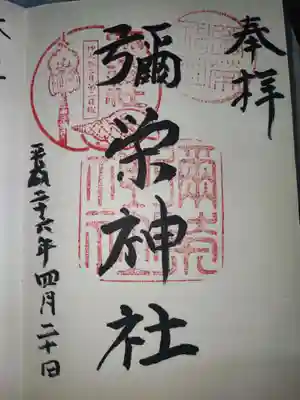 奉拝
彌栄神社
平成二十六年四月二十日